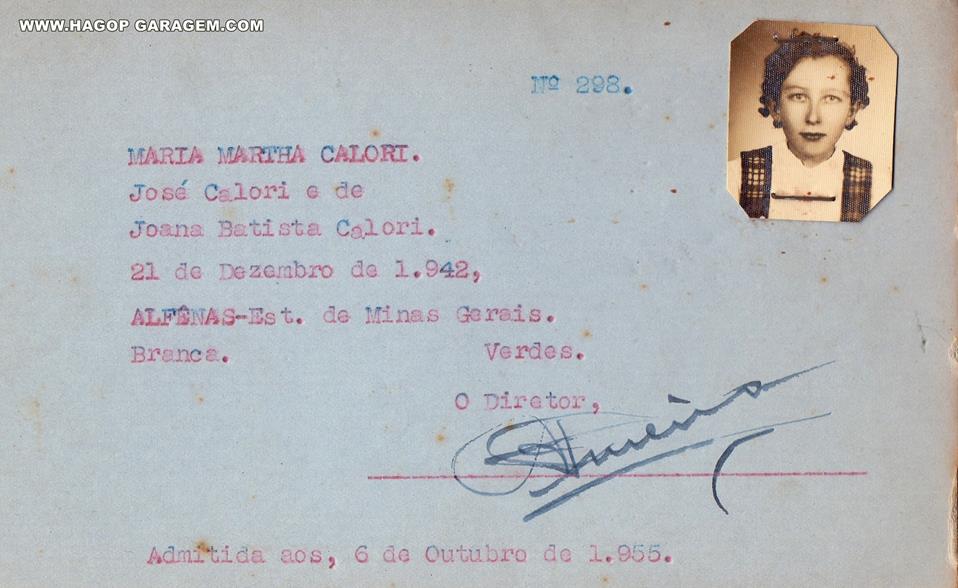 WWW.HAGOP GARAGEM.COM
Nº 298.
MARIA MARTHA CALORI.
José Calori e de
Joana Batista Calori.
21 de Dezembro de 1.942,
ALFÊNAS-Est. de Minas Gerais.
Branca. Verdes.
O Diretor,
Admitida aos, 6 de Outubro de 1.955.